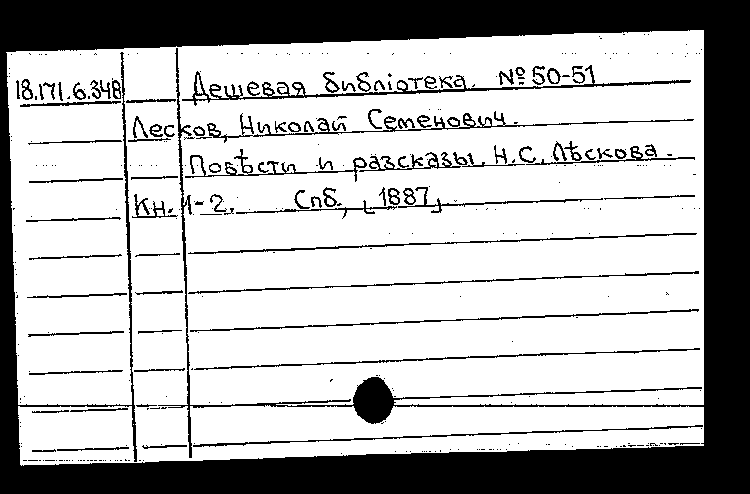 18.171.6.348 Дешевая библіотека. № 50-51
Лесков, Николай Семенович.
Повѣсти и разсказы. Н.С. Лѣскова.
Кн. 1-2. Спб., [1887]